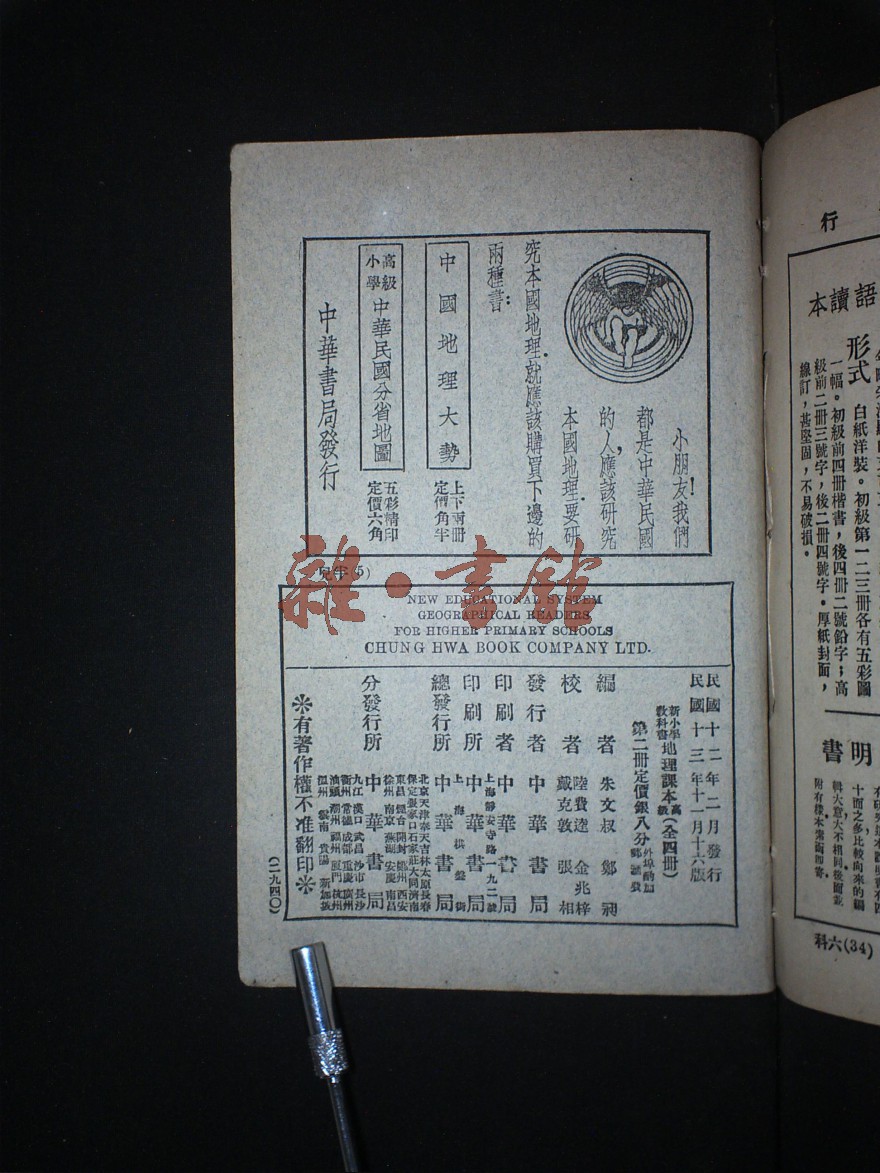 小朋友!我們
都是中華民國
的人,應該研究
本國地理.要研
究本國地理.就應該購買下邊的
兩種書:
中國地理大勢
上下兩册
定價角半
高級
小學
中華民國分省地圖
五彩精印
定價六角
中華書局發行
(5)
雜·書館
NEW EDUCATIONAL SYSTEM
GEOGRAPHICAL READERS
FOR HIGHER PRIMARY SCHOOLS
CHUNG HWA BOOK COMPANY LTD.
民國十二年二月發行
民國十三年十一月十六版
新小學
教科書
地理課本
高級
(全四册)
第二册定價銀八分
外埠酌加
郵匯費
編者 朱文叔 鄭昶
陸費逵 金兆梓
校者 戴克敦 張相
發行者 中華書局
印刷者 中華書局
上海靜安寺路一九二號
印刷所 中華書局
上海棋盤街
總發行所 中華書局
分發行所 中華書局
北京天津奉天吉林太原長春
保定張家口石家莊大同濟南
東昌煙台開封鄭州西安
徐州南京蕪湖安慶南昌
九江漢口武昌沙市長沙
衡州常德成都重慶廣州
汕頭潮州福州廈門杭州
溫州 雲南 貴陽 新加坡
※有著作權不准翻印※
(二九四〇)
行
語讀本
形式 白紙洋裝。初級第一二三册各有五彩圖
一幅。初級前四册楷書,後四册二號鉛字;高
級前二册三號字,後二册四號字。厚紙封面,
線訂,甚堅固,不易破損。
明書
十而之多比較向來的編
輯大意大不相同。後面並
附有樣本索函即寄。
科六(34)